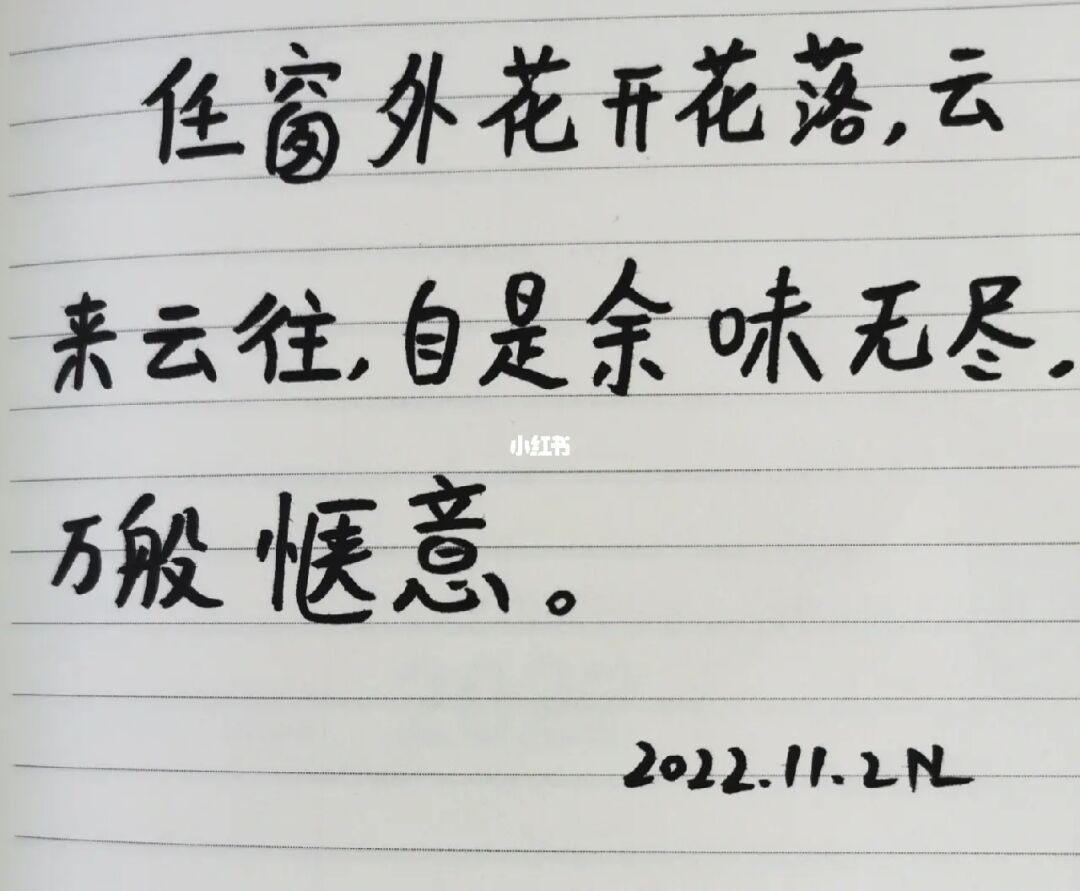 任窗外花开花落,云
来云往,自是余味无尽,
小红书
万般惬意。
2022.11.2 NL